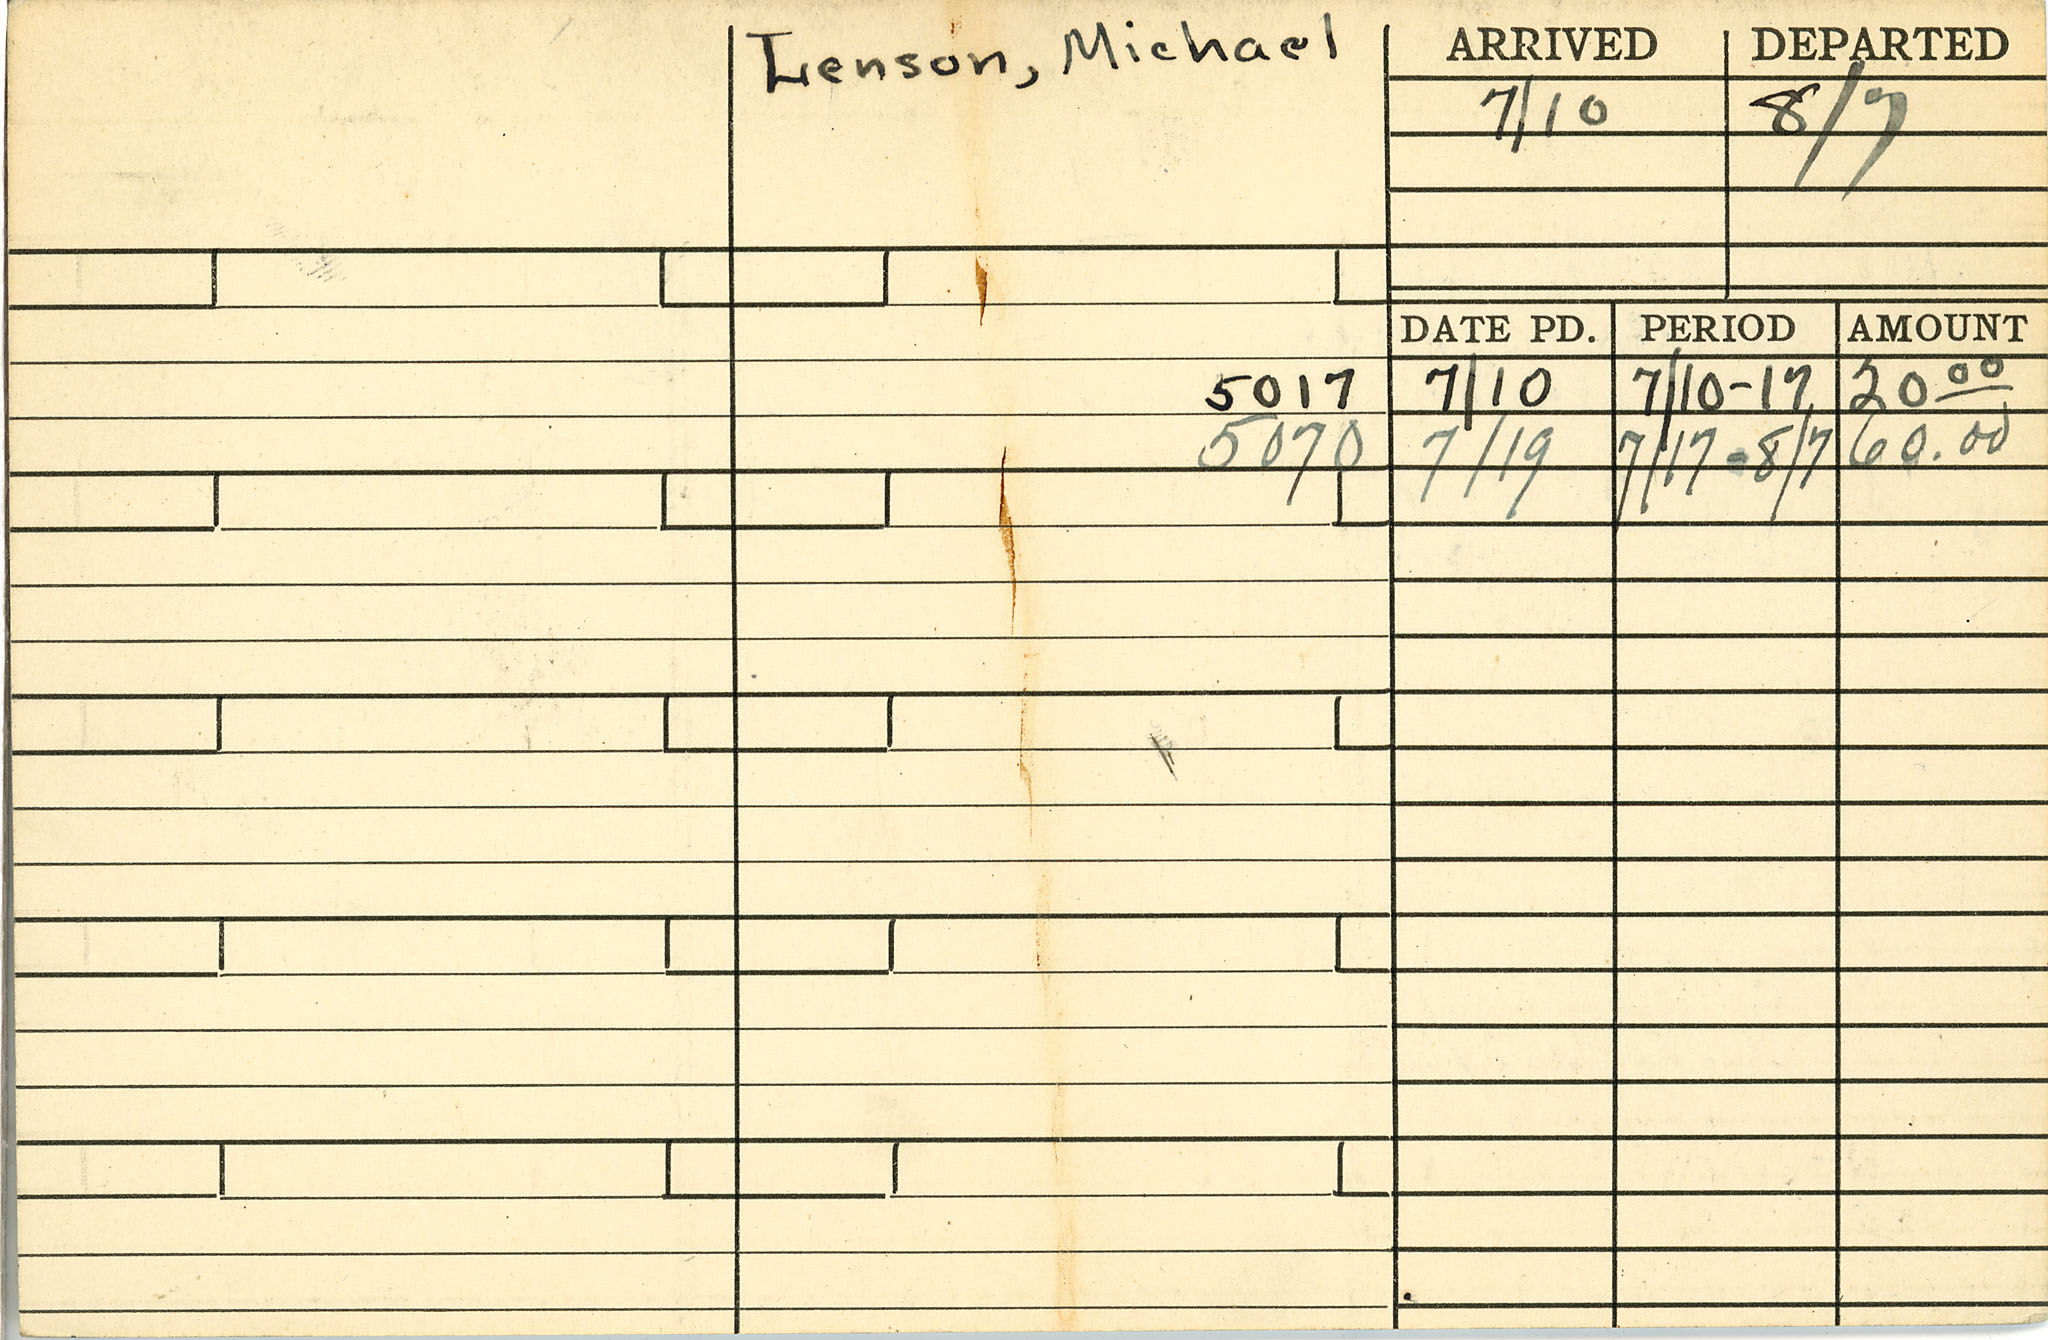 Lenson, Michael
ARRIVED DEPARTED
7/10 8/7
DATE PD. PERIOD AMOUNT
5017 7/10 7/10-17 20 00
5070 7/19 7/17-8/7 60.00